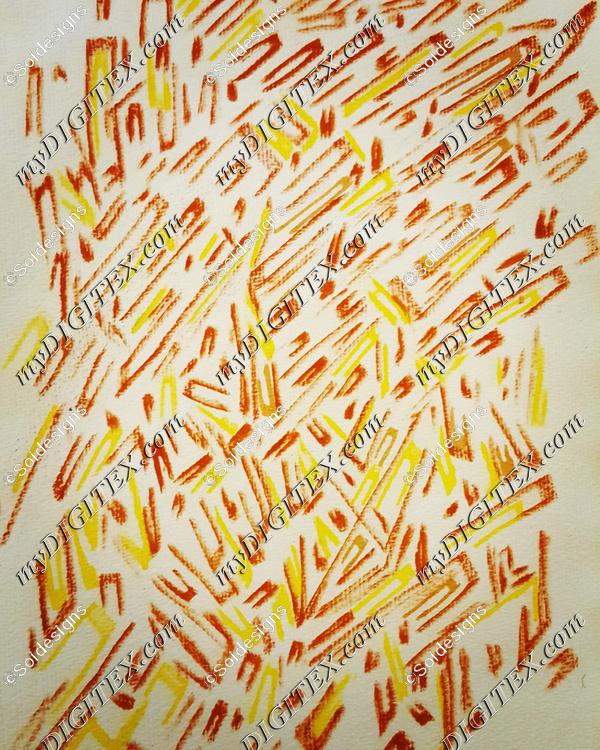 ©Soldesigns
©Soldesigns
©Soldesigns
myDIGITEX.com
myDIGITEX.com
myDIGITEX.com
©Soldesigns
©Soldesigns
©Soldesigns
myDIGITEX.com
myDIGITEX.com
myDIGITEX.com
©Soldesigns
©Soldesigns
©Soldesigns
myDIGITEX.com
myDIGITEX.com
myDIGITEX.com
©Soldesigns
©Soldesigns
©Soldesigns
myDIGITEX.com
myDIGITEX.com
myDIGITEX.com